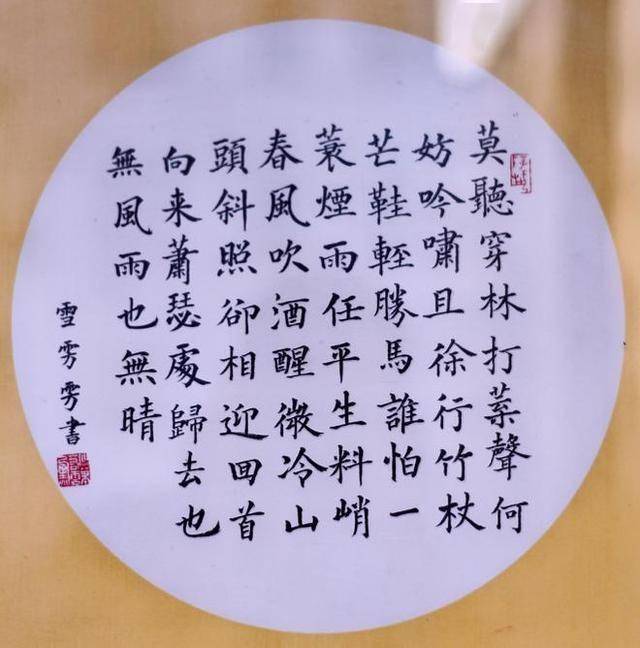 莫聽穿林打葉聲何
妨吟嘯且徐行竹杖
芒鞋輕勝馬誰怕一
蓑煙雨任平生料峭
春風吹酒醒微冷山
頭斜照卻相迎回首
向来蕭瑟處歸去也
無風雨也無晴
雪雱雱書